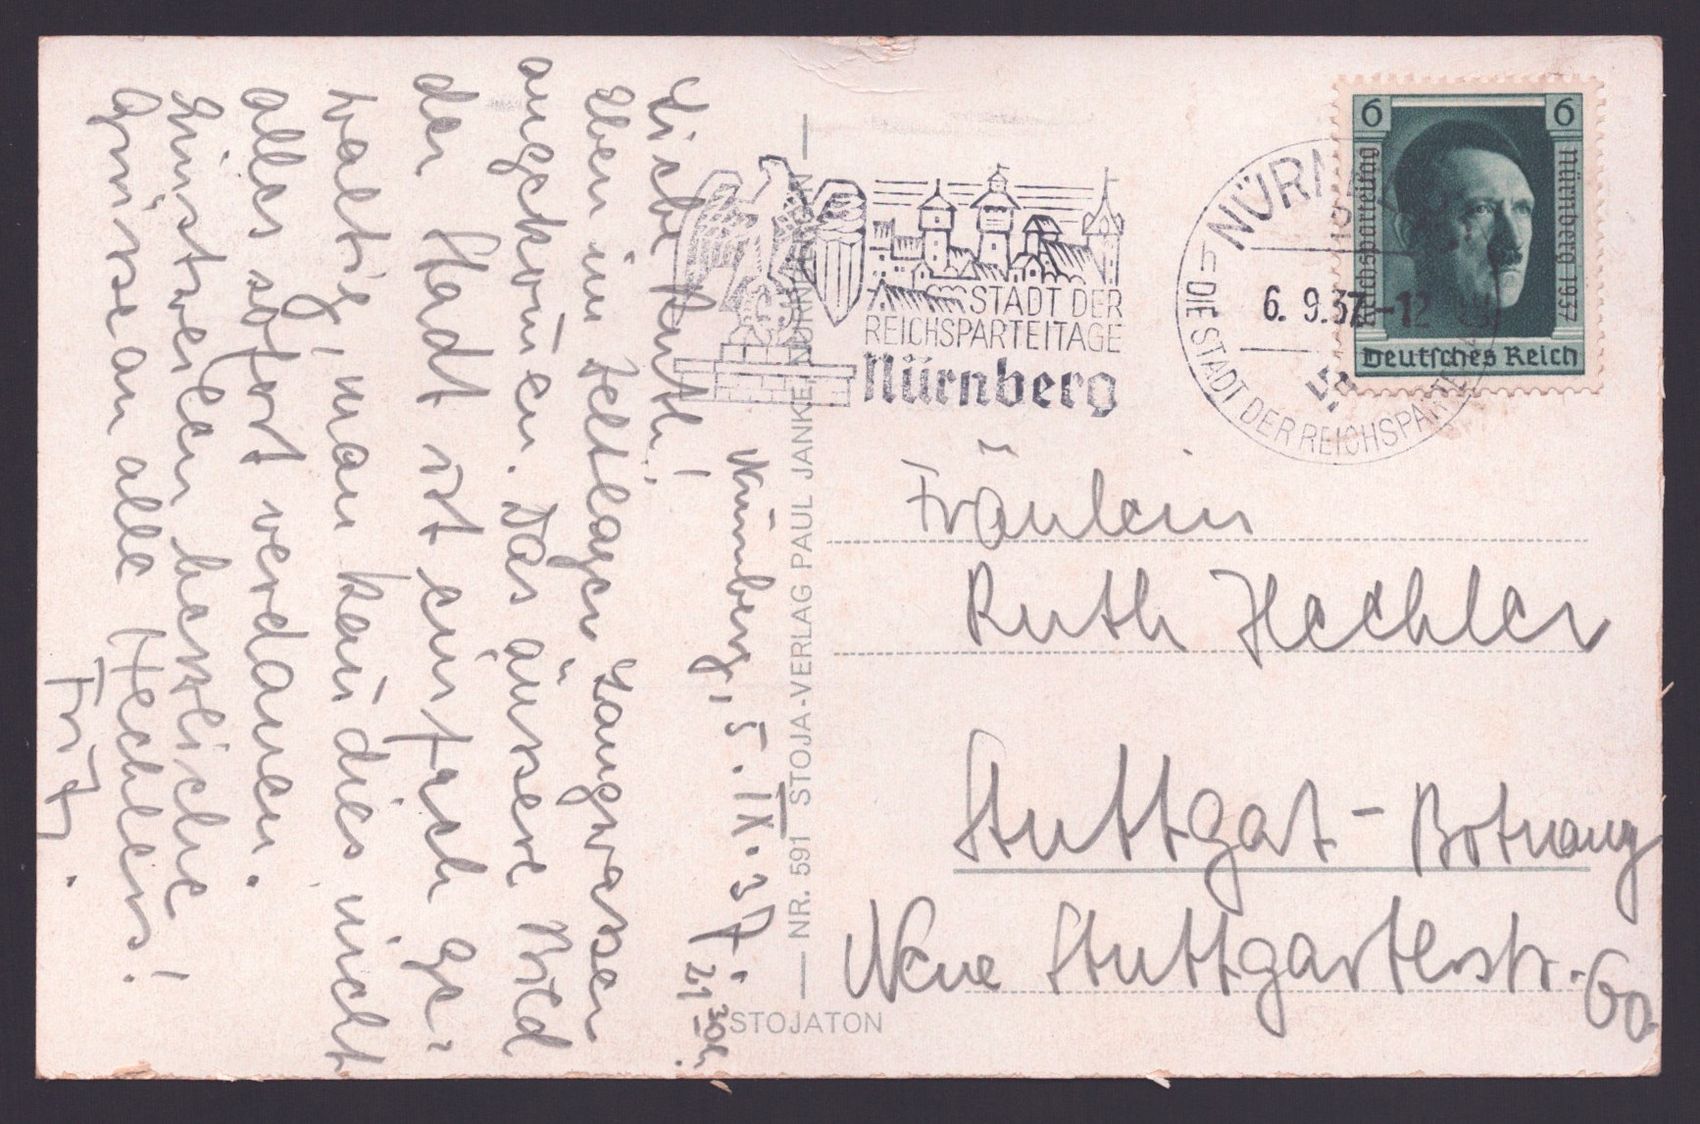 Nürnberg, 5. IX. 37. 21³⁰ h.
Liebe Ruth!
Eben im Zeltlager Langwasser
angekom̄en. Das äussere Bild
der Stadt ist einfach ge-
waltig, man kan̄ dies nicht
alles sofort verdauen.
Einstweilen herzliche
Grüsse an alle Hechlers!
Fritz.
NR. 591 STOJA-VERLAG PAUL JANKE, NÜRNBERG
STOJATON
STADT DER
REICHSPARTEITAGE
Nürnberg
NÜRNBERG
6. 9.37.-12
DIE STADT DER REICHSPARTEITAGE
6 6
Reichsparteitag
Nürnberg 1937
Deutsches Reich
Fräulein
Ruth Hechler
Stuttgart-Botnang
Neue Stuttgarterstr. 60.